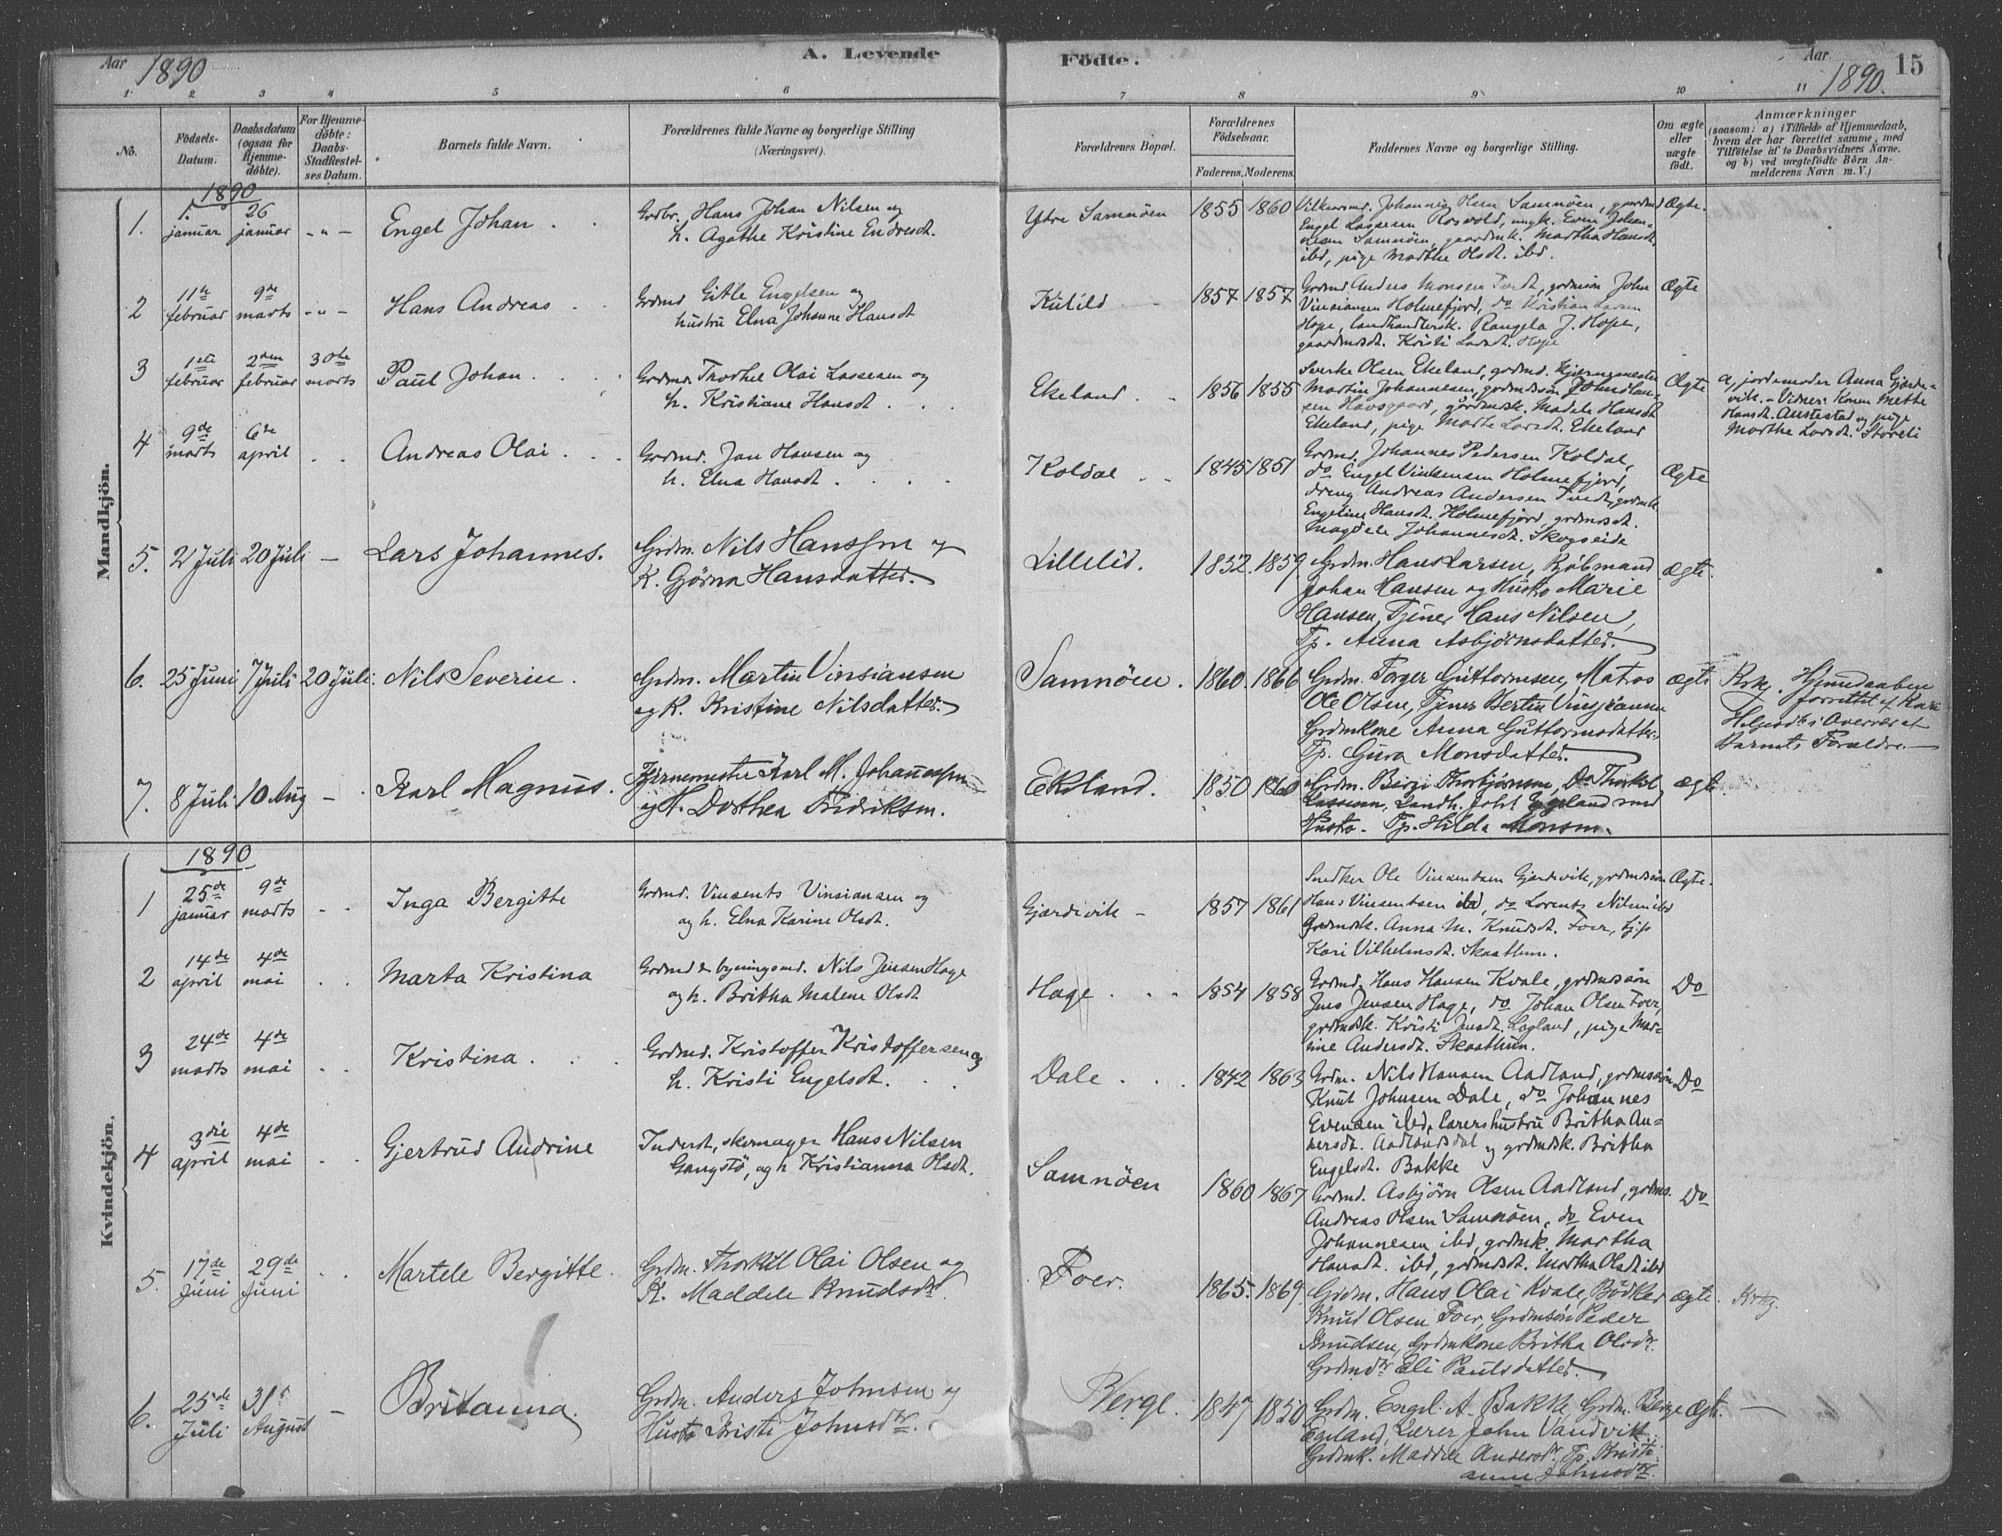 Aar 1890
A. Levende Födte.
Aar 1890. 15
1 2 3 4 5 6 7 8 9 10 11
No.
Födsels-Datum.
Daabsdatum (ogsaa for Hjemme-döbte).
For Hjemme-döbte: Daabs-Stadfæstel-ses Datum.
Barnets fulde Navn.
Forældrenes fulde Navne og borgerlige Stilling (Næringsvei).
Forældrenes Bopæl.
Forældrenes Födselsaar.
Faderens. Moderens.
Faddernes Navne og borgerlige Stilling.
Om ægte eller uægte født.
Anmærkninger
(saasom: a) i Tilfælde af Hjemmedaab,
hvem der har forrettet samme, med
Tilföielse af to Daabsvidners Navne,
og b) ved uægtefödte Börn An-
melderens Navn m. V.)
Mandkjön.
1890
1. 1. januar 26 januar - " - Engel Johan
Grdbr. Hans Johan Nilsen og
h. Agathe Kristine Endresdt.
Ytre Samnöen 1855 1860
Johannes Olsen Samnöen, gaardmd
Engel Lassesen Rosvold, ungk. Even Johan-
nesen Samnöen, gaardmk. Martha Hansdt.
ibd, pige Marthe Olsdt. ibd.
Ægte.
2 11te februar 9de marts - " - Hans Andreas
Grdmd Gitle Engelsen og
hustru Elna Johanne Hansdt
Kulild 1857 1857
Grdmd Anders Monsen Tvedt, grdmsön John
Vinsiansen Holmefjord, do Kristian Larsen
Hope, landhandlersk. Rangela J. Hope,
gaardmdsdt. Kristi Larsdt. Hope
Ægte
3 1ste februar 2den februar 30te marts Paul Johan
Grdmd. Thorkel Olai Lassesen og
h. Kristiane Hansdt.
Ekeland 1856 1855
Sverke Olsen Ekeland, grdmd. Hjernemester
Martin Johannesen, grdmdssön Johan Han-
sen Havsgaard, grdmdsk. Madele Hansdt.
Ekeland, pige Marte Larsdt. Ekeland
Ægte
a, jordemoder Anna Gjærde-
vik. - Vidner: Konen Mette
Hansdt. Austestad og pige
Marthe Larsdt. Storeli
4 9de marts 6te april Andreas Olai
Grdmd. Jan Hansen og
h. Elna Hansdt
Koldal 1845 1851
Grdmd. Johannes Pedersen Koldal,
do Engel Vinsensen Holmefjord,
dreng Andreas Andersen Tvedt, grdmk.
Engeline Hansdt. Holmefjord, grdmdsdt.
Magdele Johannesdt. Skogseide
Ægte
5. 2 Juli 20 Juli - Lars Johannes.
Grdm. Nils Hanssen og
K. Gjörna Hansdatter.
Lillelid. 1852. 1859
Grdm. Hans Larsen, Kjöbmand
Johan Hansen og Hustro Marie
Hansen, Tjener Hans Nilsen,
Tp. Anna Asbjörnsdatter.
ægte.
6. 25 Juni 7 Juli 20 Juli. Nils Severin.
Grdm. Martin Vinsiansen
og K. Kristine Nilsdatter.
Samnöen. 1860. 1866
Grdm. Torger Guttormsen, Matros
Ole Olsen, Tjener Bertin Vinsjiansen
Grdmkone Anna Guttormsdatter.
Tp. Gura Monsdatter.
ægte
Krkg. Hjemdaaben
forrettet af Kari
Helgesdt. i Overvær af
Barnets Forældre.
7. 8 Juli 10 Aug - Karl Magnus.
Hjernemester Karl M. Johannesen
og H. Dorthea Fredriksen.
Ekeland. 1850 1860
Grdm. Birgi Thorbjörnsen, Do Thorkel
Lassesen, Landh. Johs Egeland med
Hustro. Tp. Hilda Monsen.
ægte.
Kvindekjön.
1890
1 25de januar 9de marts Inga Bergitte
Grdmd. Vinsents Vinsiansen og
og h. Elna Karine Olsdt.
Gjærdivik - 1857 1861
Snedker Ole Vinsentsen Gjærdevik, grdmdssön
Hans Vinsentsen ibd, do Lorents Nilsen ibd
Grdmdsk. Anna M. Knudsdt. Foer, tjp
Kari Vilhelmsdt. Skaathun.
Ægte.
2 14de april 4de mai Marta Kristina
Grdmd & bygningsmd. Nils Jensen Hage
og h. Britha Malene Olsdt
Hage 1854 1858
Grdmd. Hans Hansen Kvale, grdmdssön
Jens Jensen Hage, do Johan Olsen Foer,
grdmdsk. Kristi Jensdt. Lögland, pige Mar-
tine Andersdt. Skaathun.
Do
3 24de marts 4de mai Kristina
Grdmd. Kristoffer Kristoffersen og
h. Kristi Engelsdt.
Dale 1842 1863
Grdm. Nils Hansen Aadland, grdmssön
Knut Johnsen Dale, do Johannes
Evensen ibd, lærershustru Britha An-
dersdt. Aadlandsdal og grdmdk. Britha
Engelsdt. Bakke
Do
4 3die april 4de mai Gjertrud Andrine
Inderst, skomager Hans Nilsen
Gangstö, og h Kristianna Olsdt.
Samnöen 1860 1867
Grdmd. Asbjörn Olsen Aadland, grdms.
Andreas Olsen Samnöen, do Even
Johannesen ibd, grdmk. Martha
Hansdt. ibd, grdmdsdt. Martha Olsdt ibd
Do
5. 17de Juni 29de Juni Martele Bergitte.
Grdm. Thorkel Olai Olsen og
K. Maddele Knudsdtr.
Foer. 1865. 1869.
Grdm. Hans Olai Kvale, Bödker
Knud Olsen Foer, Grdmsön Peder
Knudsen, Grdmkone Britha Olsdtr.
Grdmdtr Eli Paulsdatter.
ægte. Krkg.
6. 25de Juli 31te August - Britanna.
Grdm. Anders Johnsen og
Hustro Kristi Johnsdtr.
Berge. 1847 1850
Grdm. Engel A. Bakke, Grdm. Berge
Egeland, Lærer John Vandvik,
Grdmk. Maddele Andersdtr. Tp. Kristi-
anna Johnsdtr.
Ægte. -